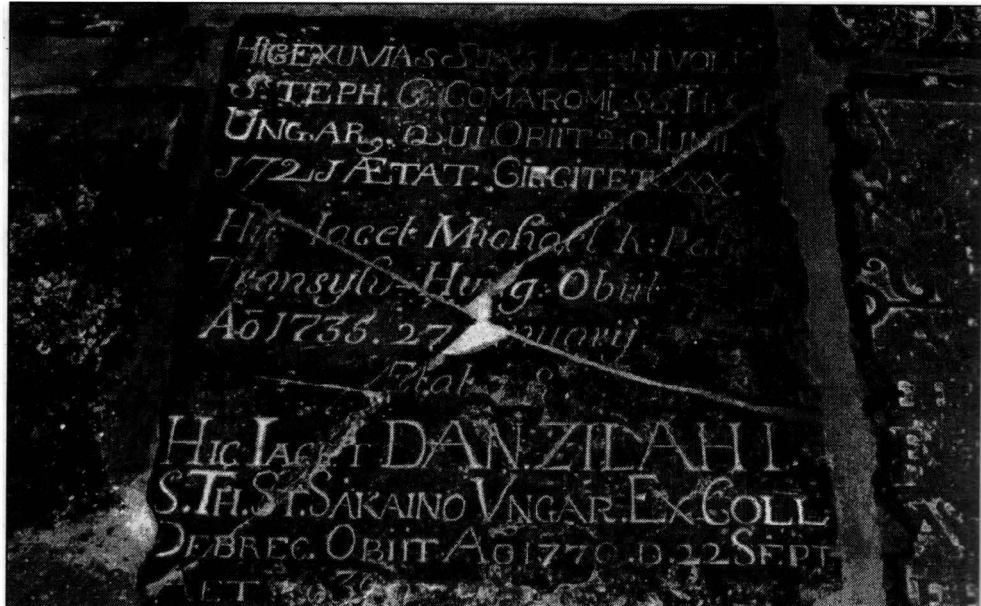 HIC EXUVIAS SUAS LOCARI VOL
STEPH. G. COMAROMI. S.S. TH. S
UNGAR. QUI OBIIT 20 IUNII.
1721 ÆTAT. CIRCITER XXX.
Hic Iacet Michael K: Pa
Transylv. Hung: Obiit
Aō 1735. 27 nuarij
Ætat
HIC IACET DAN. ZILAHI.
S. TH. ST. SAKAINO VNGAR. EX COLL.
DEBREC. OBIIT. Aō 1770. D. 22 SEPT.
ÆT